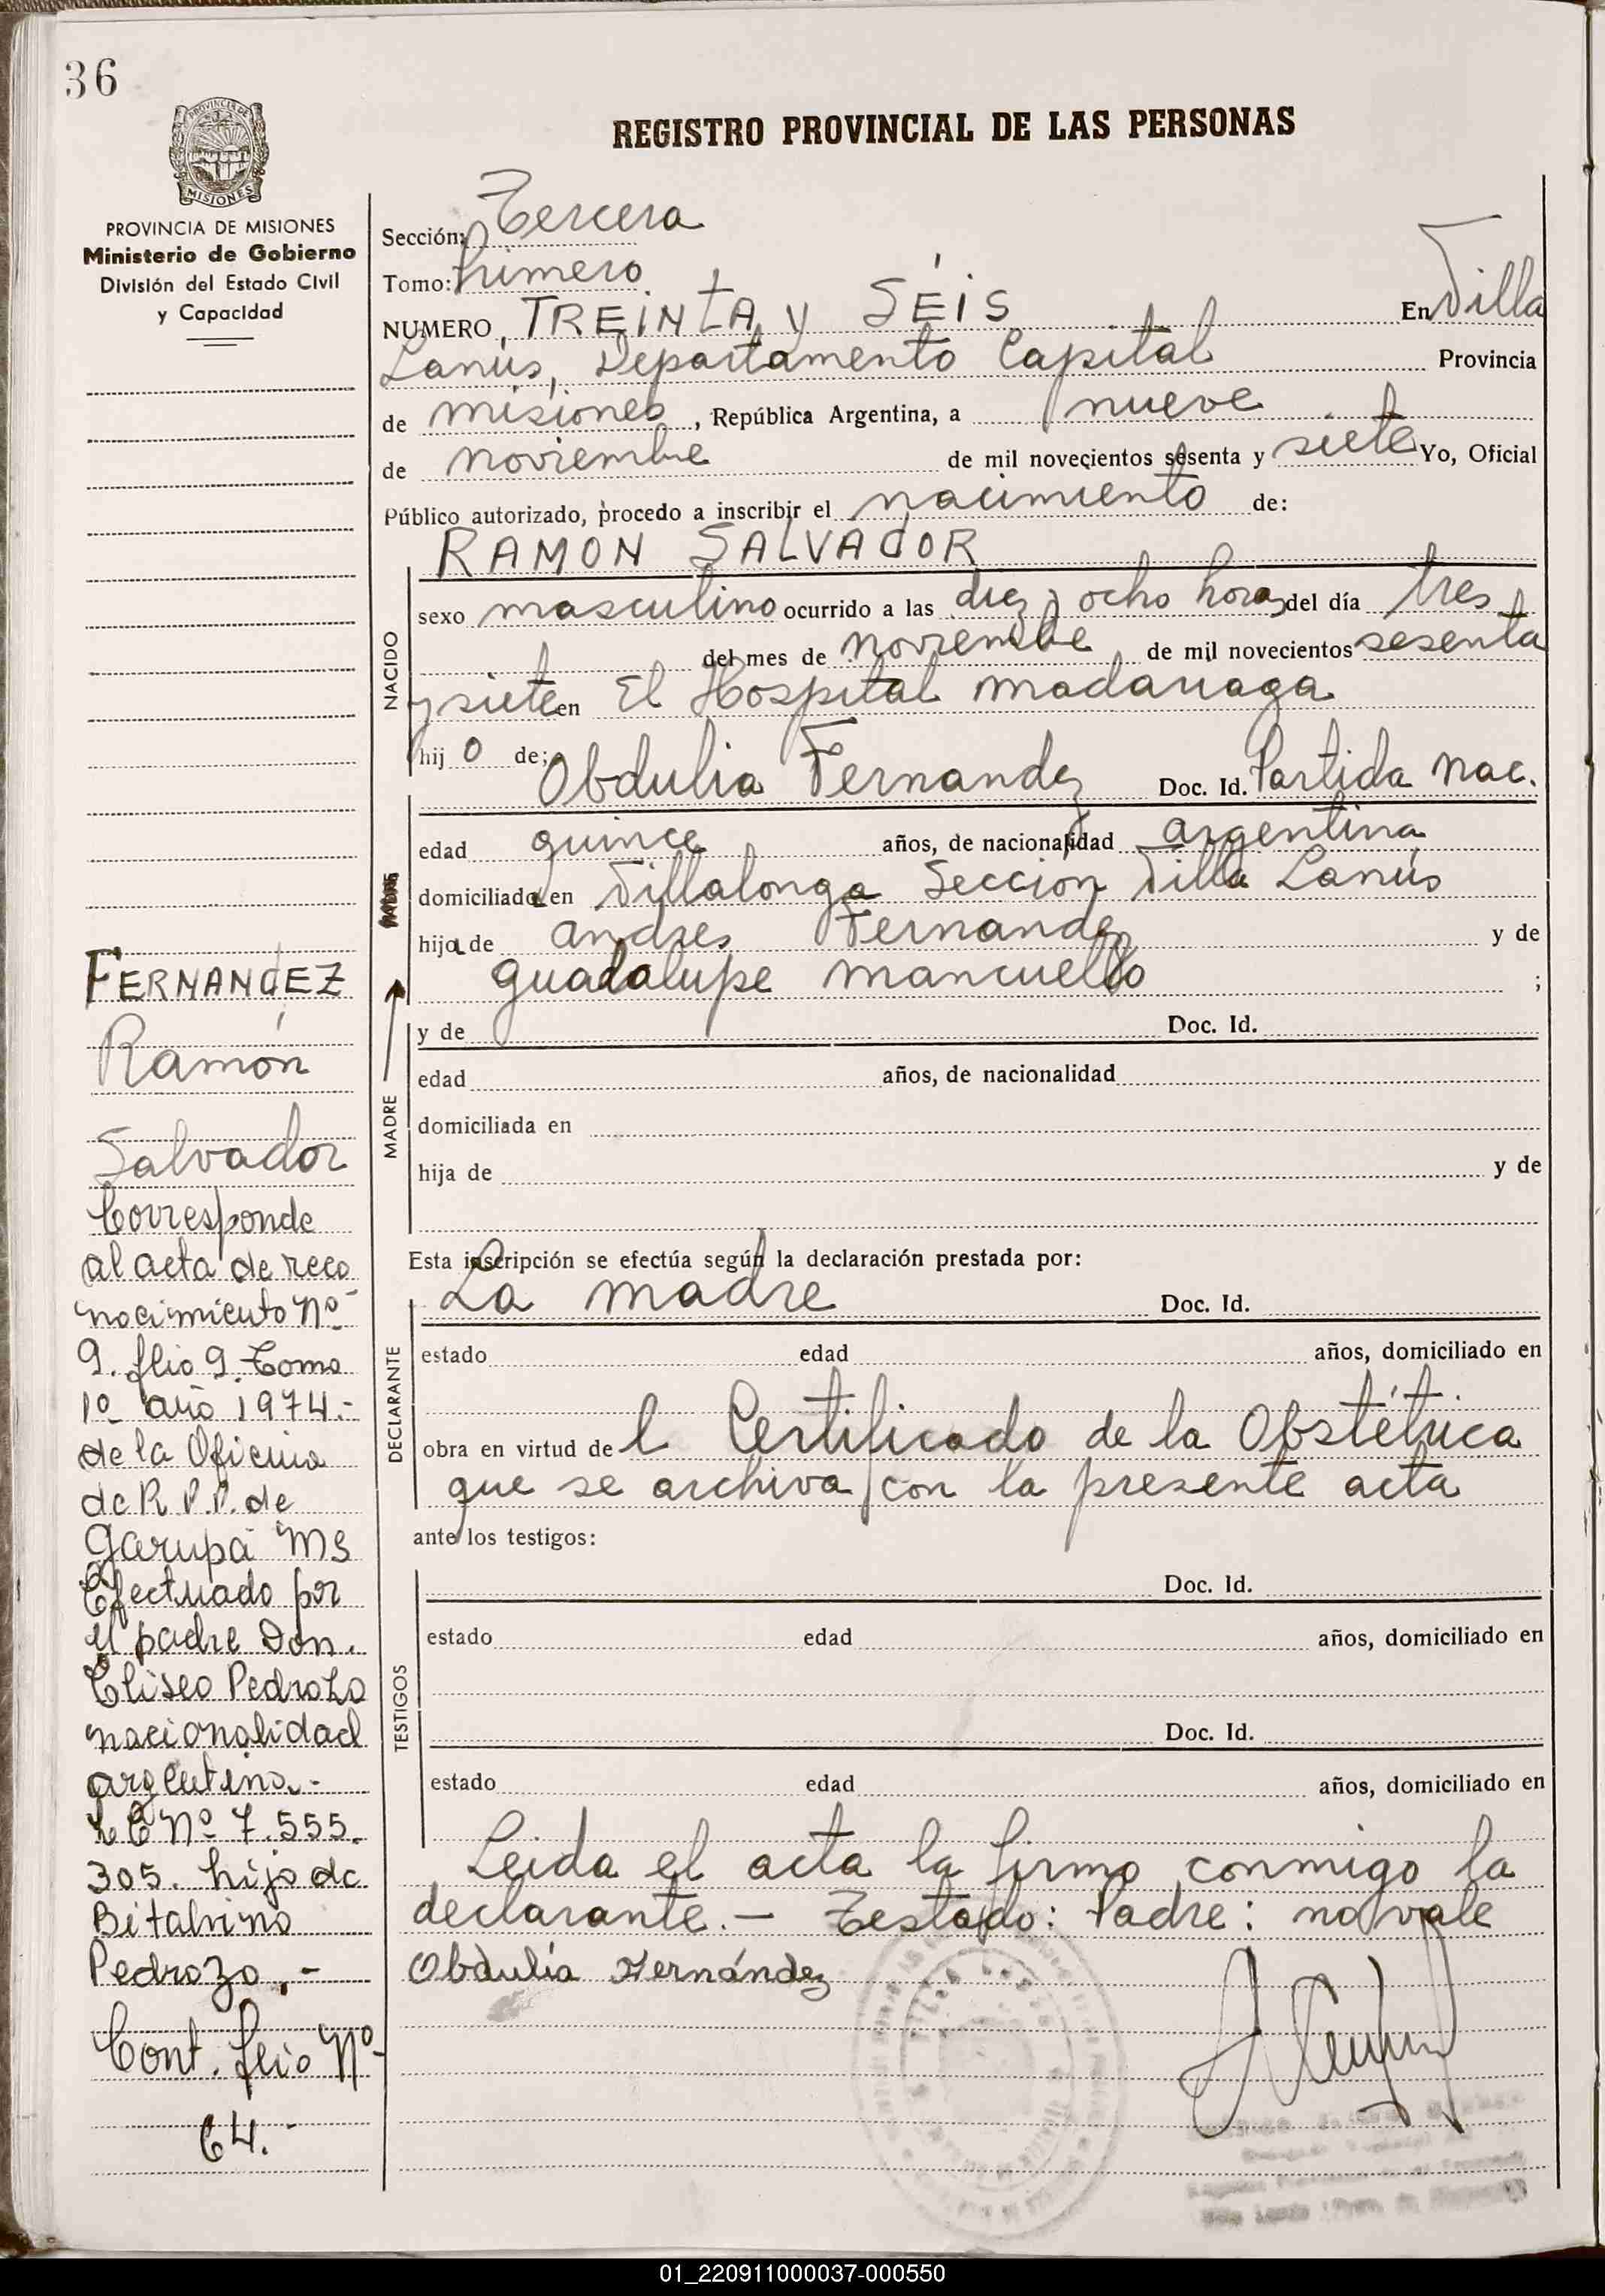 36
PROVINCIA DE
MISIONES
PROVINCIA DE MISIONES
Ministerio de Gobierno
División del Estado Civil
y Capacidad
FERNANdEZ
Ramón
Salvador
Corresponde
al acta de reco
nocimiento Nº
9. flio 9. Tomo
1º año 1974.-
de la Oficina
de R.P.P. de
Garupá Ms
Efectuado por
el padre Don.
Eliseo Pedrozo
nacionalidad
argentina.-
LE Nº 7.555.
305. hijo de
Bitalvino
Pedrozo.-
Cont. flio Nº
64.-
REGISTRO PROVINCIAL DE LAS PERSONAS
Sección: Tercera
Tomo: Primero
NUMERO, TREINTA y SÉIS En Villa
Lanús, Departamento Capital Provincia
de misiones, República Argentina, a nueve
de noviembre de mil novecientos sesenta y siete Yo, Oficial
Público autorizado, procedo a inscribir el nacimiento de:
RAMON SALVADOR
NACIDO
sexo masculino ocurrido a las diez y ocho horas del día tres
del mes de noviembre de mil novecientos sesenta
y siete en El Hospital madariaga
hij o de: Obdulia Fernandez Doc. Id. Partida nac.
edad quince años, de nacionalidad argentina
domiciliada en Villalonga Sección Villa Lanús
hija de andres Fernandez y de
guadalupe mancuello ;
y de Doc. Id.
MADRE
edad años, de nacionalidad
domiciliada en
hija de y de
Esta inscripción se efectúa según la declaración prestada por:
La madre Doc. Id.
DECLARANTE
estado edad años, domiciliado en
obra en virtud de l Certificado de la Obstétrica
que se archiva con la presente acta
ante los testigos:
Doc. Id.
TESTIGOS
estado edad años, domiciliado en
Doc. Id.
estado edad años, domiciliado en
Leida el acta la firma conmigo la
declarante.- Testado: Padre: no vale
Obdulia Fernández
01_220911000037-000550